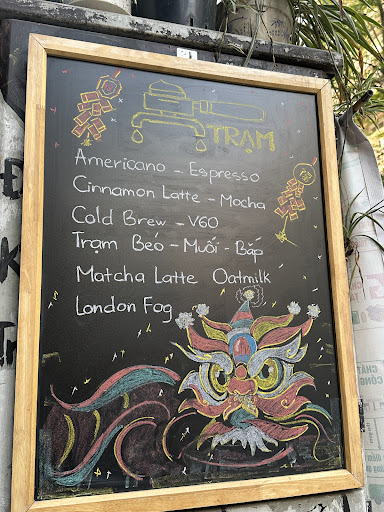 TRẠM
Americano - Espresso
Cinnamon Latte - Mocha
Cold Brew - V60
Trạm Béo - Muối - Bắp
Matcha Latte Oatmilk
London Fog